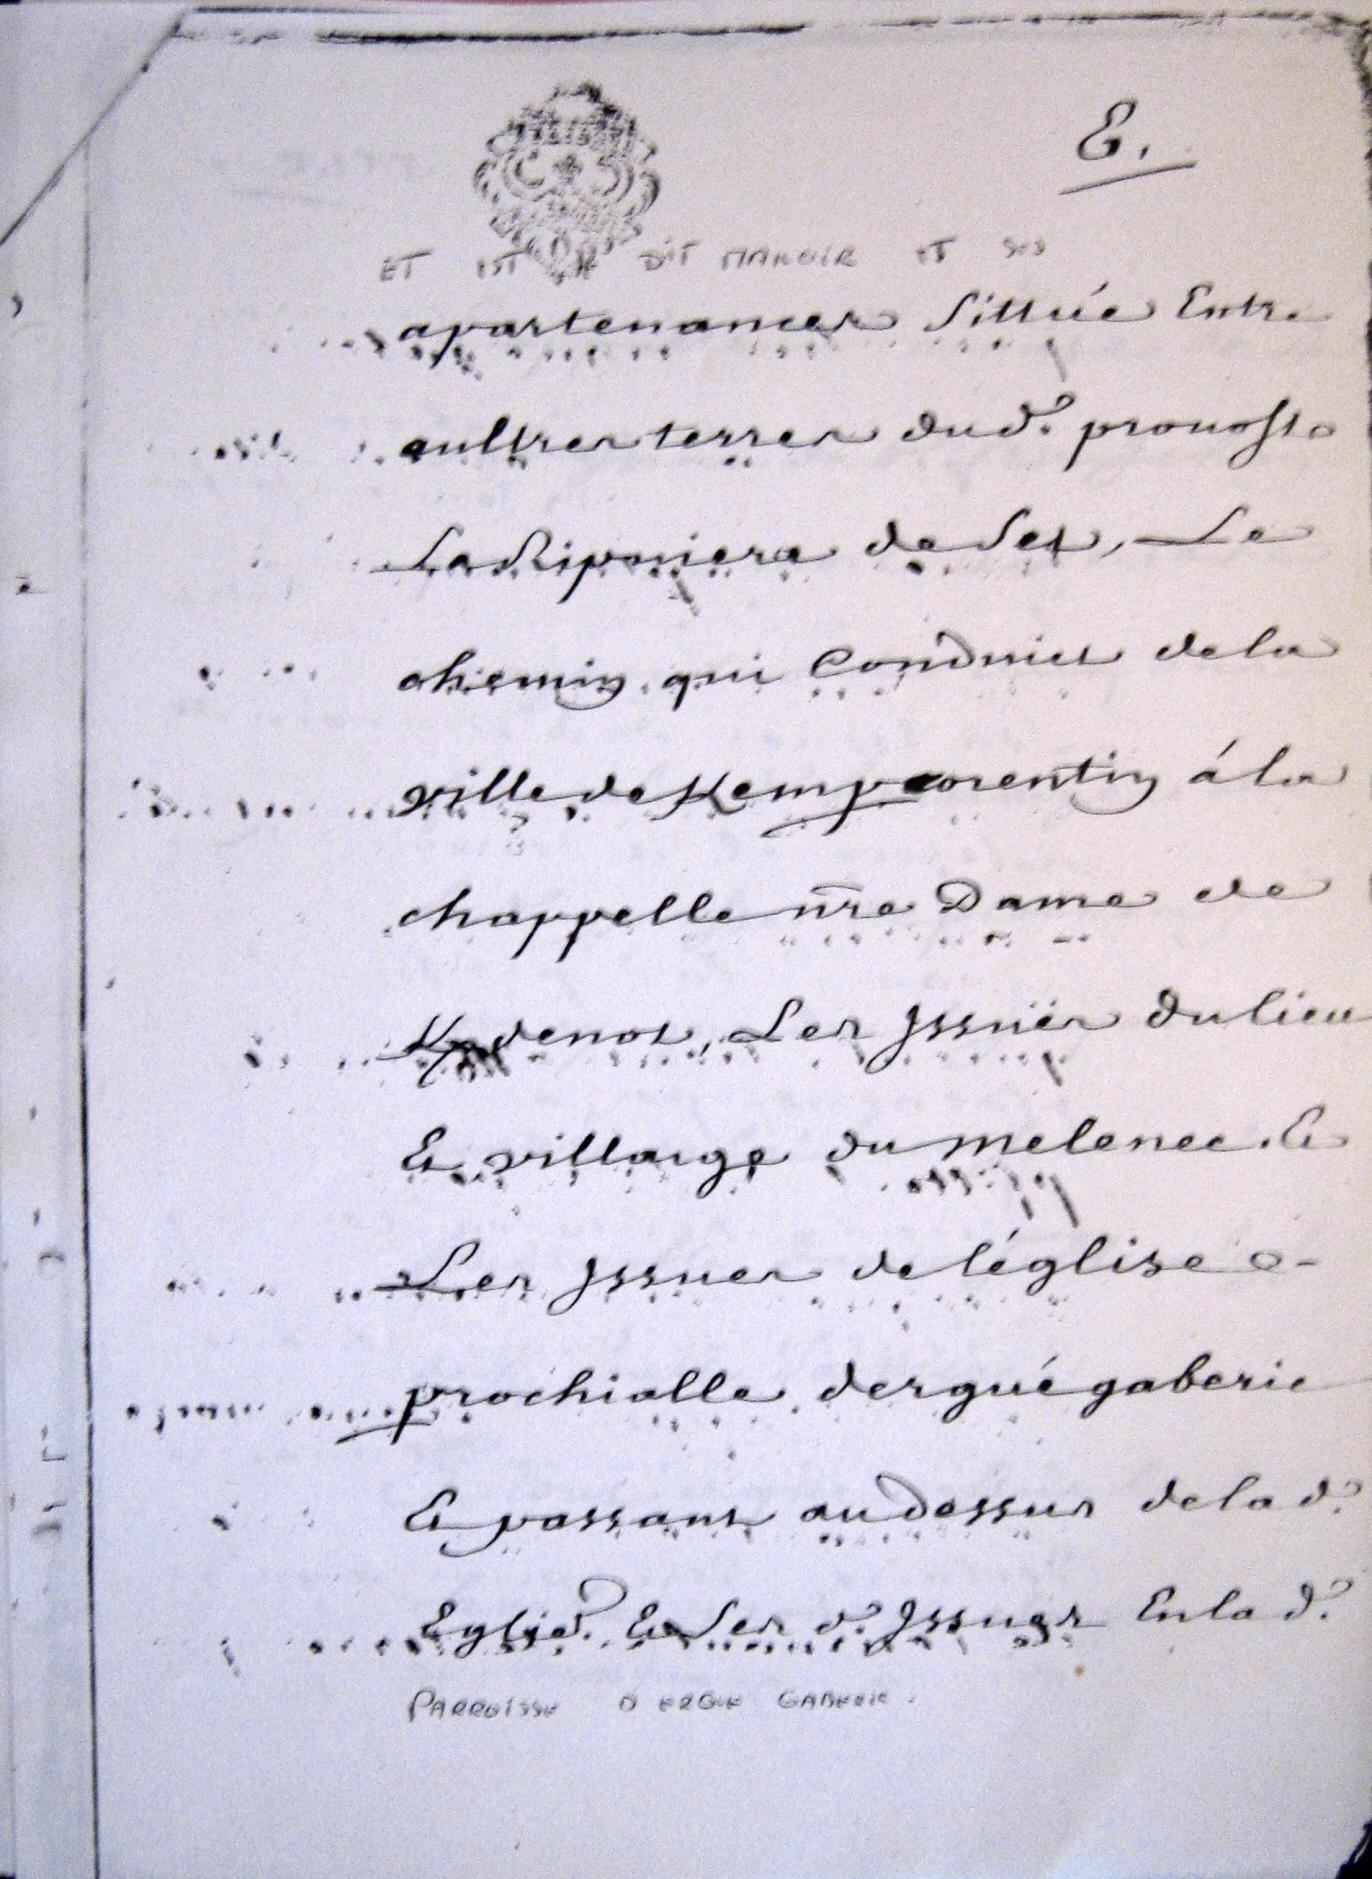 E.
ET EST LE DIT MANOIR ET SES
apartenances sittué Entre
aultres terres dud. prouost
La Riponiere de Let, Le
chemin qui Conduict de la
ville de Kempcorentin á la
chappelle nre Dame de
Kdenot, Les Jssuës du lieu
Et villaige du melenec. Et
Les Jssues de léglise
prochialle dergué gaberic
Et passant au dessus de la d.
Eglise. Et Les d. Jssues En la d.
PARROISSE D ERGUE GABERIC.